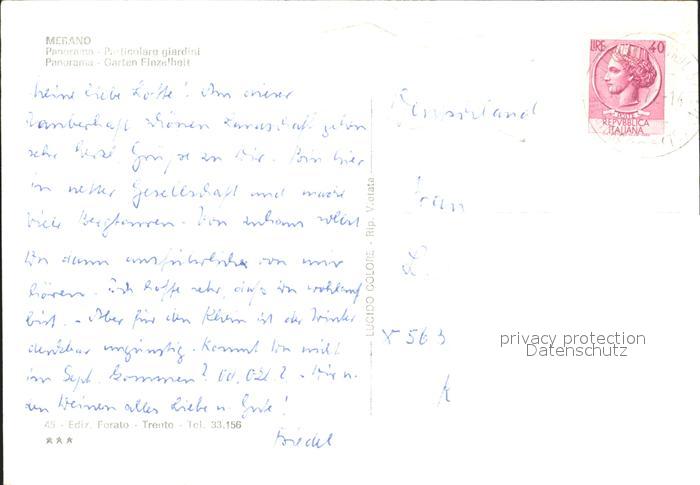 MERANO
Panorama - Particolare giardini
Panorama - Garten Einzelheit
Meine liebe Lotte! Aus dieser
zauberhaft schönen Landschaft gehen
sehr herzl. Grüße zu Dir. Bin hier
in netter Gesellschaft und mache
viele Bergtouren. Von zuhaus wirst
Du dann ausführlicher von mir
hören. Ich hoffe sehr, daß Du wohlauf
bist. - Aber für den Rhein ist der Winter
denkbar ungünstig. Kannst Du nicht
im Sept. kommen? od. Okt.? - Dir u.
den Deinen alles Liebe u. Gute!
Friedel
45 - Ediz. Forato - Trento - Tel. 33.156
★★★
LUCIDO COLORE - Rip. Vietata
LIRE 40
POSTE
REPVBBLICA
ITALIANA
Deutschland
Frau
L.
X 563
k
privacy protection
Datenschutz